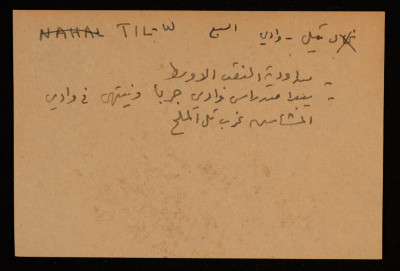 NAHAL TIL W السبع تيلي - وادي
- من اودية النقب الاوسط
- يبدأ من راس وادي جربا وينتهي في وادي
المشاش غرب تل الملح